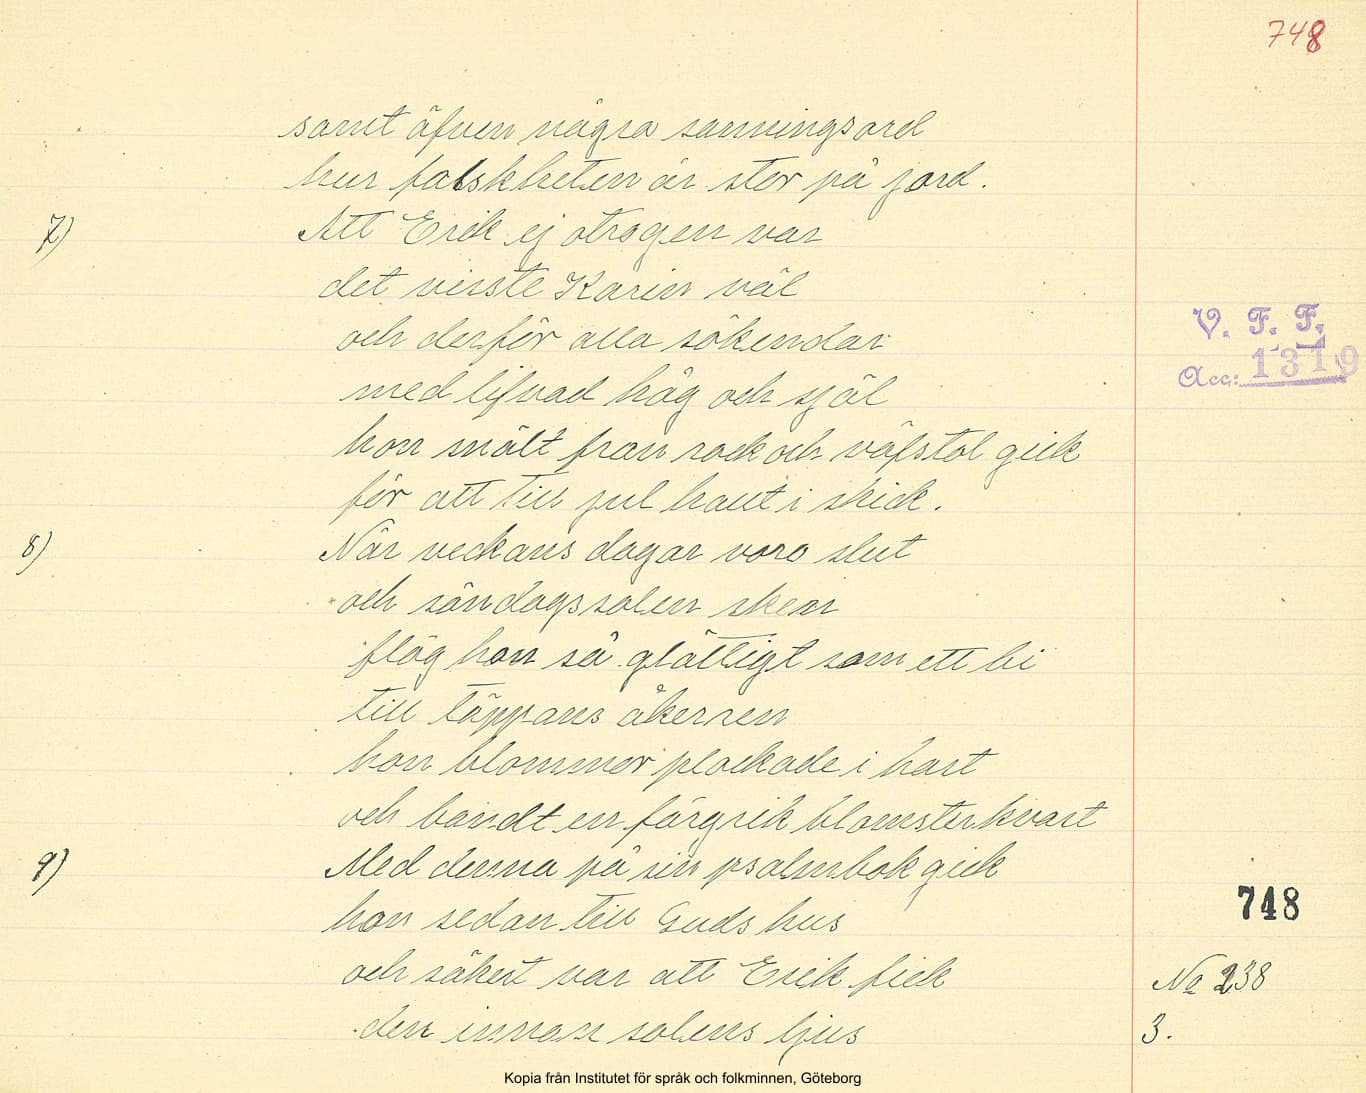 748
samt äfven några sanningsord
hur falskheten är stor på jord.
7) Att Erik ej otrogen var
det visste Karin väl
och derför alla sökendar
med lifvad håg och själ
hon snält från rock och väfstol gick
för att till jul haut i skick.
8) När veckans dagar voro slut
och söndagssolen sken
flög hon så glättigt som ett bi
till täppans åkerren
hon blommor plockade i hast
och bandt en färgrik blomsterkvast
9) Med denna på sin psalmbok gick
hon sedan till Guds hus
och säkert var att Erik fick
den innan solens ljus
V. F. F.
Acc: 1319
748
No 238
3.
Kopia från Institutet för språk och folkminnen, Göteborg